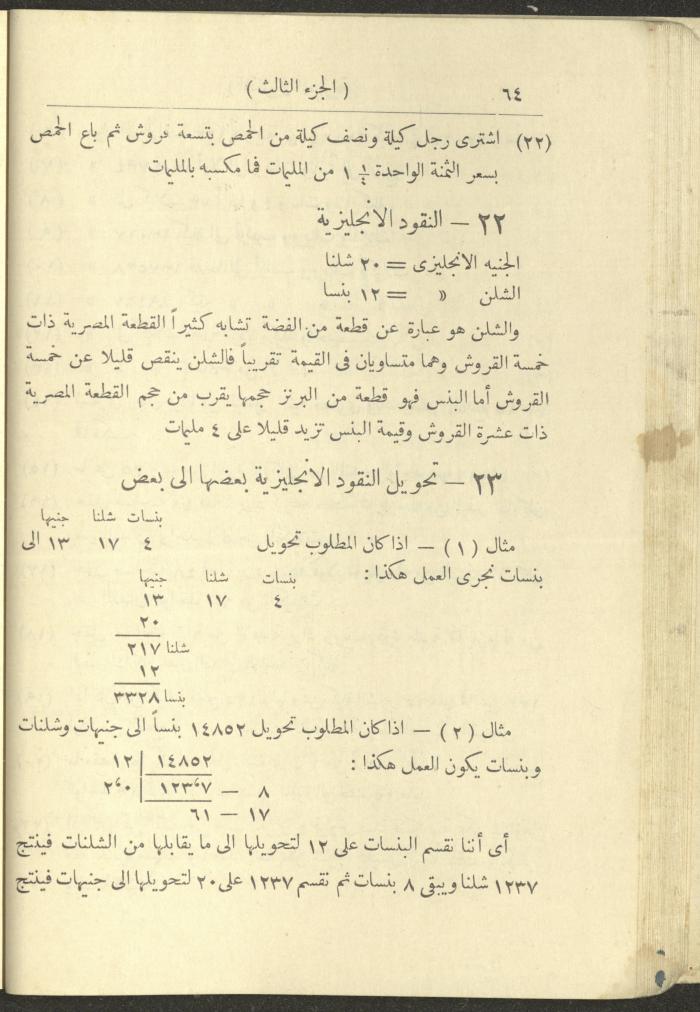 ( الجزء الثالث )
٦٤
(٢٢) اشترى رجل كيلة ونصف كيلة من الحمص بتسعة قروش ثم باع الحمص
بسعر الثمنة الواحدة ١ ١/٤ من المليمات فما مكسبه بالمليمات
٢٢ – النقود الانجليزية
الجنيه الانجليزى = ٢٠ شلنا
الشلن » = ١٢ بنسا
والشلن هو عبارة عن قطعة من الفضة تشابه كثيراً القطعة المصرية ذات
خمسة القروش وهما متساويان فى القيمة تقريباً فالشلن ينقص قليلا عن خمسة
القروش أما البنس فهو قطعة من البرنز حجمها يقرب من حجم القطعة المصرية
ذات عشرة القروش وقيمة البنس تزيد قليلا على ٤ مليمات
٢٣ – تحويل النقود الانجليزية بعضها الى بعض
بنسات شلنا جنيها
مثال (١) – اذا كان المطلوب تحويل ٤ ١٧ ١٣ الى
بنسات نجرى العمل هكذا :
بنسات شلنا جنيها
٤ ١٧ ١٣
٢٠
٢١٧ شلنا
١٢
٣٣٢٨ بنسا
مثال (٢) – اذا كان المطلوب تحويل ١٤٨٥٢ بنساً الى جنيهات وشلنات
وبنسات يكون العمل هكذا :
١٤٨٥٢ | ١٢
٨ – ١٢٣،٧ | ٢،٠
١٧ – ٦١
أى أننا نقسم البنسات على ١٢ لتحويلها الى ما يقابلها من الشلنات فينتج
١٢٣٧ شلنا ويبقى ٨ بنسات ثم نقسم ١٢٣٧ على ٢٠ لتحويلها الى جنيهات فينتج